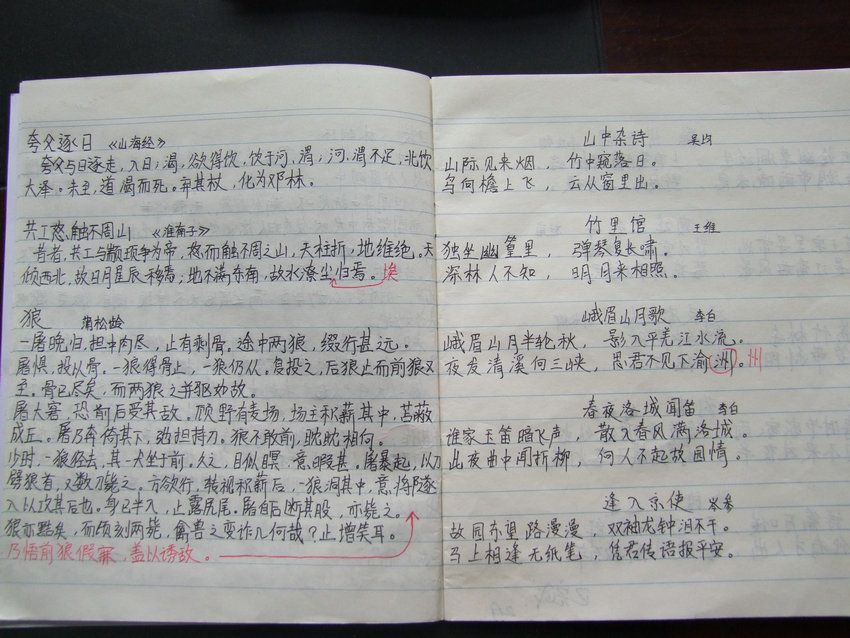 夸父逐日 《山海经》
夸父与日逐走,入日;渴,欲得饮,饮于河、渭;河、渭不足,北饮
大泽。未至,道渴而死。弃其杖,化为邓林。
共工怒触不周山 《淮南子》
昔者,共工与颛顼争为帝,怒而触不周之山,天柱折,地维绝。天
倾西北,故日月星辰移焉;地不满东南,故水潦尘归焉。埃
狼 蒲松龄
一屠晚归,担中肉尽,止有剩骨。途中两狼,缀行甚远。
屠惧,投以骨。一狼得骨止,一狼仍从。复投之,后狼止而前狼又
至。骨已尽矣,而两狼之并驱如故。
屠大窘,恐前后受其敌。顾野有麦场,场主积薪其中,苫蔽
成丘。屠乃奔倚其下,弛担持刀。狼不敢前,眈眈相向。
少时,一狼径去,其一犬坐于前。久之,目似瞑,意暇甚。屠暴起,以刀
劈狼首,又数刀毙之。方欲行,转视积薪后,一狼洞其中,意将隧
入以攻其后也。身已半入,止露尻尾。屠自后断其股,亦毙之。
狼亦黠矣,而顷刻两毙,禽兽之变诈几何哉?止增笑耳。
乃悟前狼假寐,盖以诱敌。
山中杂诗 吴均
山际见来烟,竹中窥落日。
鸟向檐上飞,云从窗里出。
竹里馆 王维
独坐幽篁里,弹琴复长啸。
深林人不知,明月来相照。
峨眉山月歌 李白
峨眉山月半轮秋,影入平羌江水流。
夜发清溪向三峡,思君不见下渝洲。州
春夜洛城闻笛 李白
谁家玉笛暗飞声,散入春风满洛城。
此夜曲中闻折柳,何人不起故园情。
逢入京使 岑参
故园东望路漫漫,双袖龙钟泪不干。
马上相逢无纸笔,凭君传语报平安。